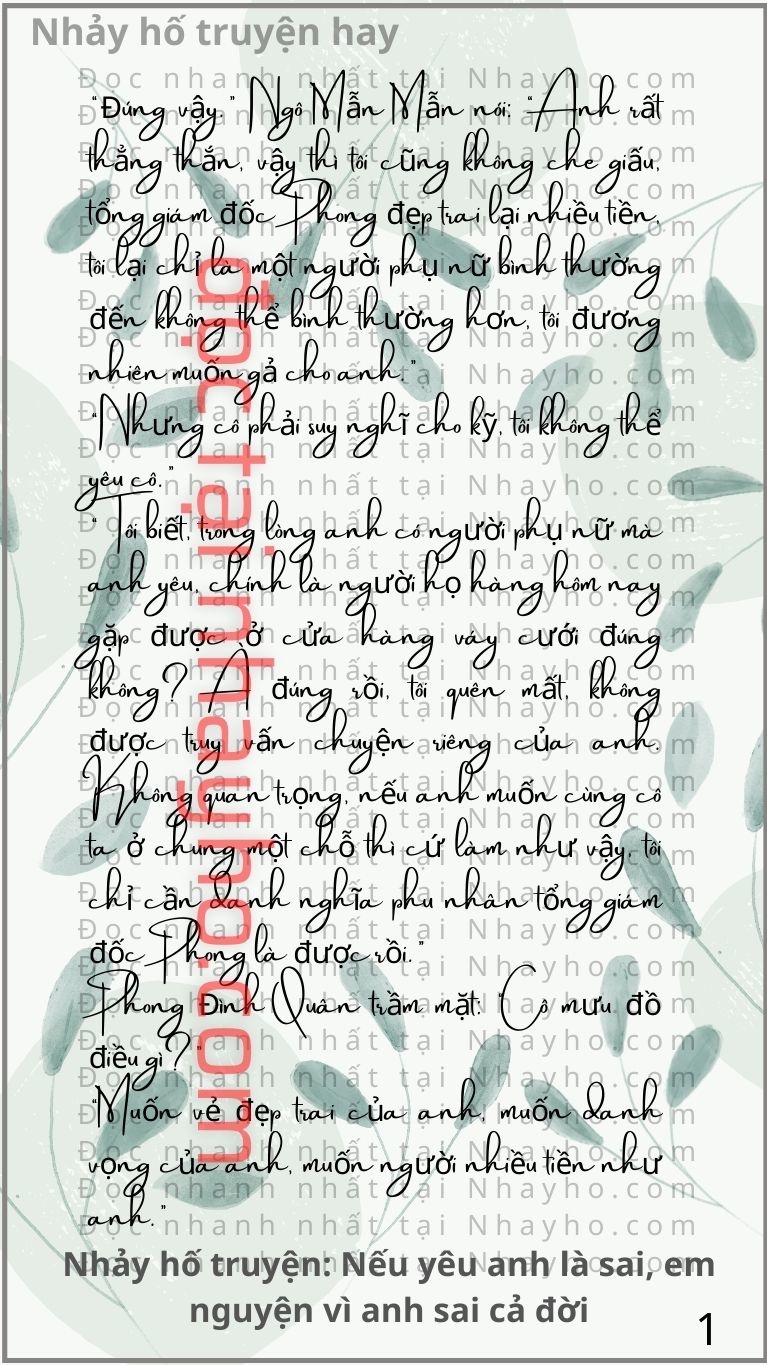 Nhảy hố truyện hay
"Đúng vậy." Ngô Mẫn Mẫn nói: "Anh rất
thẳng thắn, vậy thì tôi cũng không che giấu,
tổng giám đốc Phong đẹp trai lại nhiều tiền,
tôi lại chỉ là một người phụ nữ bình thường
đến không thể bình thường hơn, tôi đương
nhiên muốn gả cho anh."
"Nhưng cô phải suy nghĩ cho kỹ, tôi không thể
yêu cô."
"Tôi biết, trong lòng anh có người phụ nữ mà
anh yêu, chính là người họ hàng hôm nay
gặp được ở cửa hàng váy cưới đúng
không? À đúng rồi, tôi quên mất, không
được truy vấn chuyện riêng của anh.
Không quan trọng, nếu anh muốn cùng cô
ta ở chung một chỗ thì cứ làm như vậy, tôi
chỉ cần danh nghĩa phu nhân tổng giám
đốc Phong là được rồi."
Phong Đình Quân trầm mặt: "Cô mưu đồ
điều gì?"
"Muốn vẻ đẹp trai của anh, muốn danh
vọng của anh, muốn người nhiều tiền như
anh."
đọc tại nhayho.com
Đọc nhanh nhất tại Nhayho.com
Nhảy hố truyện: Nếu yêu anh là sai, em
nguyện vì anh sai cả đời
1